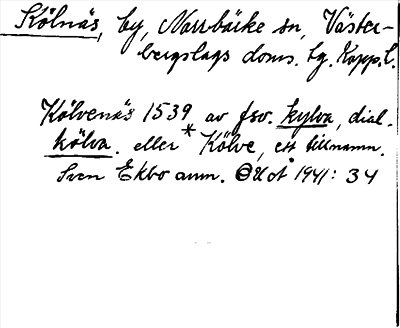 Kölnäs, by, Norrbärke sn, Väster-
bergslags doms. tg. Kopp. l.
Kölvenäs 1539 av fsv. kylva, dial.
kölva. eller *Kölve, ett tillnamn.
Sven Ekbo anm. OUoÅ 1941: 34